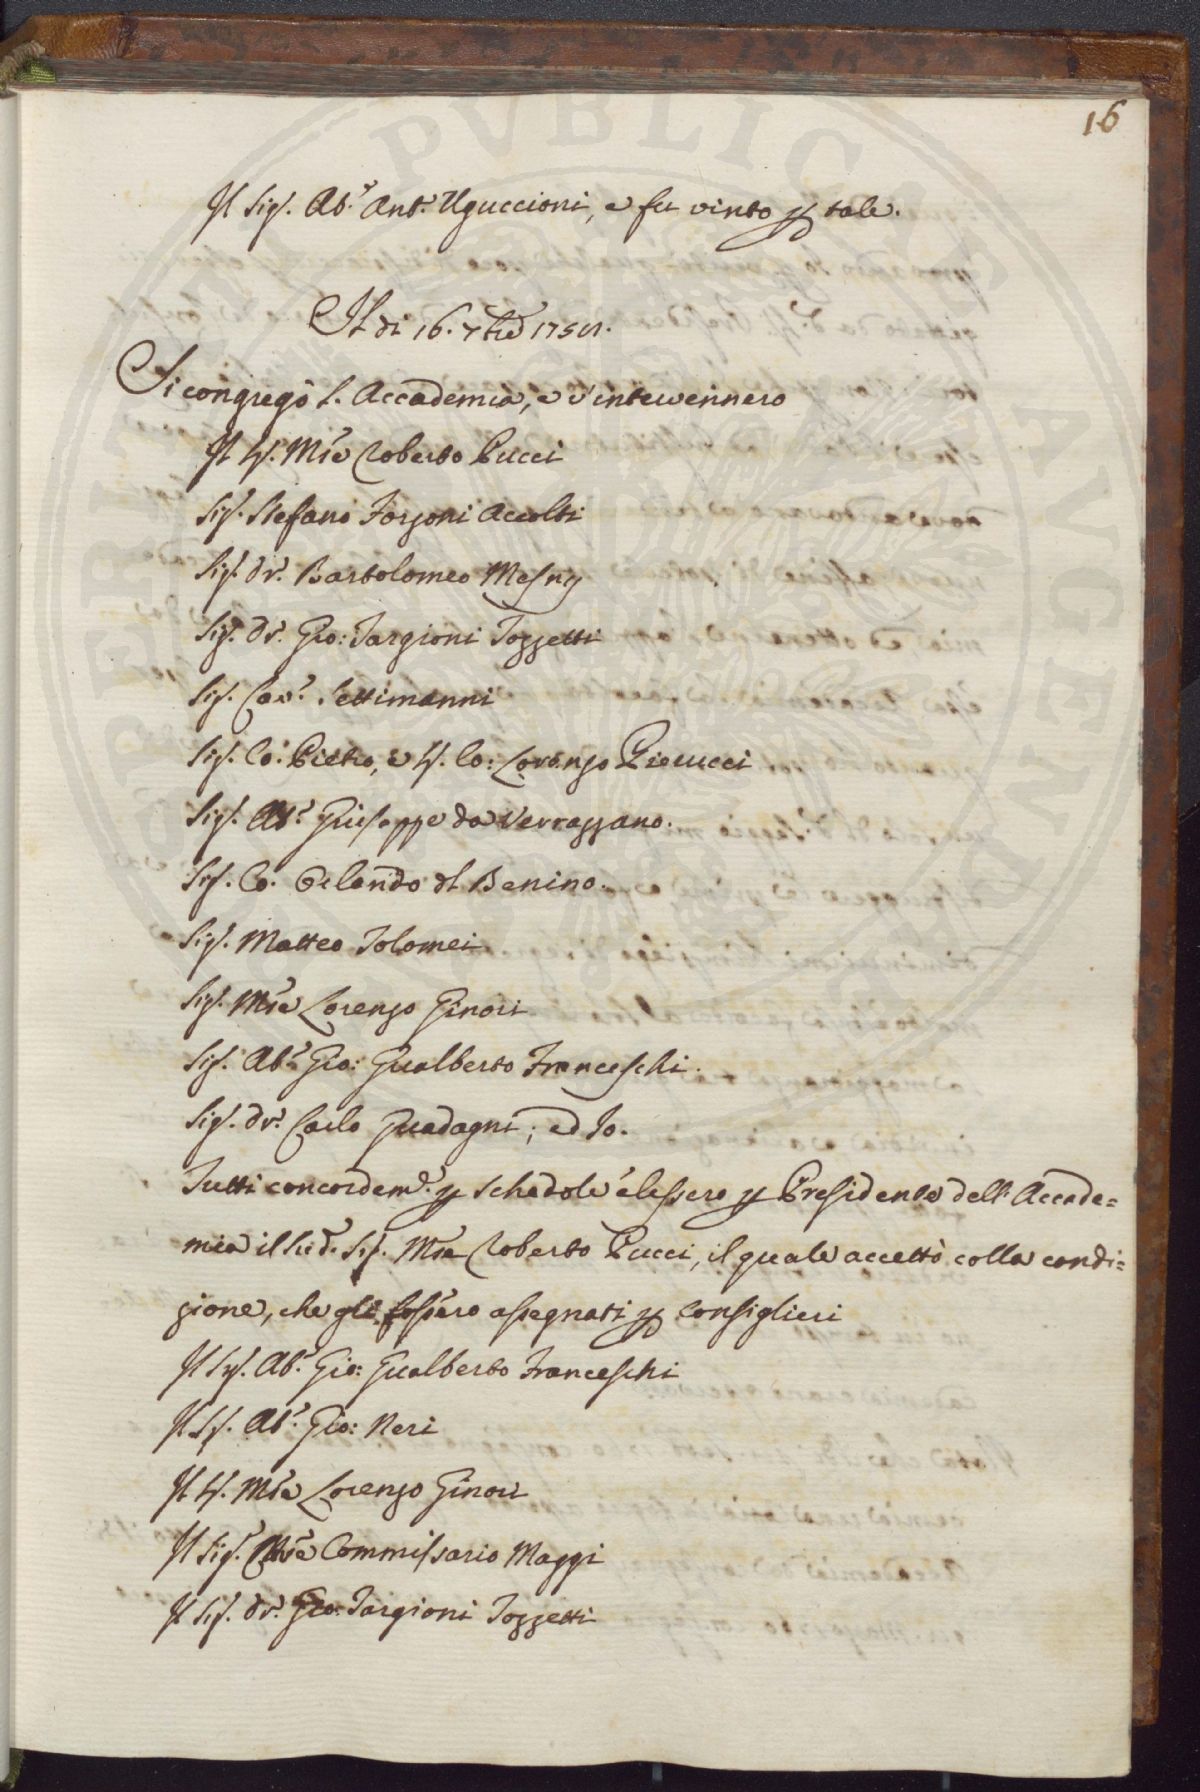 16
Il Sig. Ab.e Ant.o Uguccioni, e fu vinto p tale.
Il dì 16. 7bre
Si congregò l'Accademia, e v'intervennero
Il Sig. Mse Roberto Pucci
Sig. Stefano Forzoni Accolti
Sig. Dr. Bartolomeo Mesny
Sig. Dr. Gio: Targioni Tozzetti
Sig. Cav.e Settimanni
Sig. Co: Pietro, e Sig. Co: Lorenzo Pierucci
Sig. Ab.e Giuseppe da Verrazzano.
Sig. Co. Orlando del Benino.
Sig. Matteo Tolomei
Sig. Mse Lorenzo Ginori
Sig. Ab.e Gio: Gualberto Franceschi.
Sig. Dr. Carlo Guadagni; ed Io.
Tutti concordem.e p schedole elessero p Presidente dell'Accade=
mia il Sud.o Sig. Mse Roberto Pucci, il quale accettò colla condi=
zione, che gli fossero assegnati p Consiglieri
Il Sig. Ab.e Gio: Gualberto Franceschi
Il Sig. Ab.e Gio: Neri
Il Sig. Mse Lorenzo Ginori
Il Sig. Commissario Maggi
Il Sig. Dr. Gio: Targioni Tozzetti